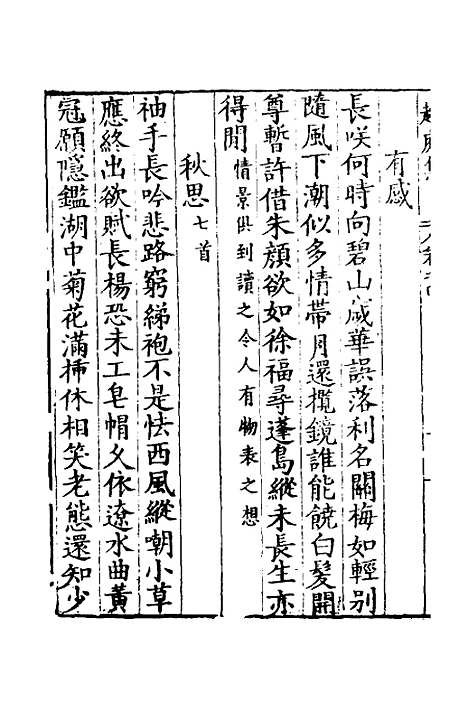 有感
長咲何時向碧山歲華誤落利名關梅如輕別
隨風下潮似多情帶月還攬鏡誰能饒白髮開
尊暫許借朱顏欲如徐福尋蓬島縱未長生亦
得閒情景俱到讀之令人有物表之想
秋思七首
袖手長吟悲路窮綈袍不是怯西風縱嘲小草
應終出欲賦長楊恐未工皂帽久依遼水曲黃
冠願隱鑑湖中菊花滿揷休相笑老態還知少